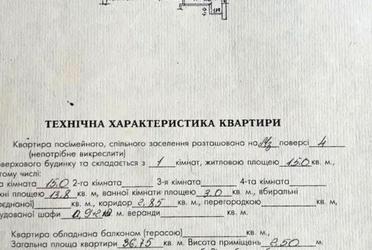 ТЕХНІЧНА ХАРАКТЕРИСТИКА КВАРТИРИ
Квартира посімейного, спільного заселення розташована на поверсі 4
(непотрібне викреслити)
поверхового будинку та складається з 1 кімнат, житловою площею 15.0 кв. м.,
тому числі:
а кімната 15.0 2-га кімната 3-я кімната 4-та кімната
хні площею 13.8 кв. м, ванної кімнати площею 3.0 кв. м., вбиральні
єднаної) кв. м., коридор 2.85 кв. м., перегородкою кв. м.,
удованої шафи кв. м. веранди кв. м.
Квартира обладнана балконом (терасою) кв. м.,
Загальна площа квартири 36.75 кв. м. Висота приміщень 2.50 м.